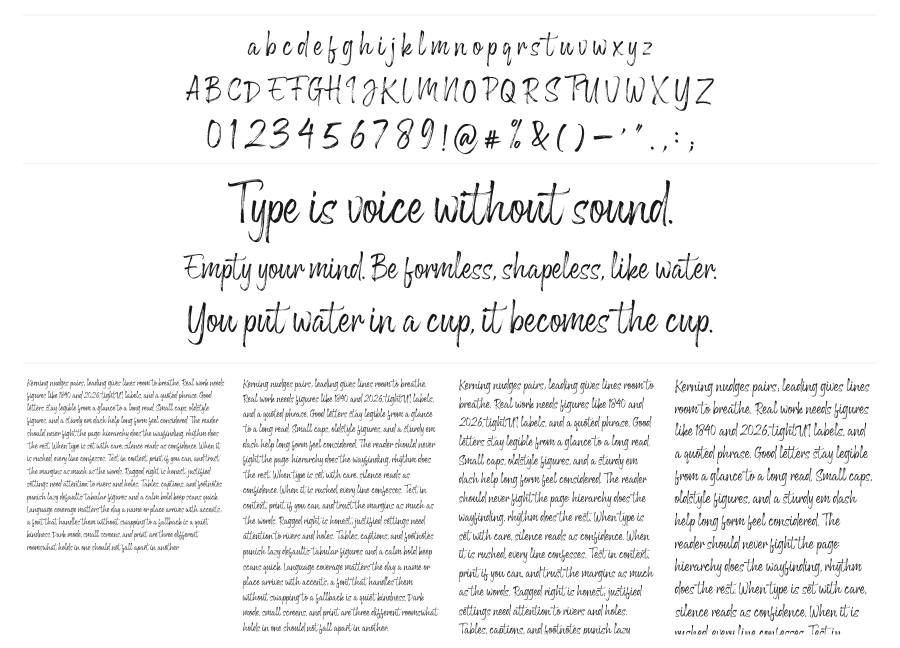 abcdefghijklmnopqrstuvwxyz
ABCDEFGHIJKLMNOPQRSTUVWXYZ
0123456789!@#%&()—'".,:;
Type is voice without sound.
Empty your mind. Be formless, shapeless, like water.
You put water in a cup, it becomes the cup.
Kerning nudges pairs, leading gives lines room to breathe. Real work needs
figures like 1840 and 2026, tight UI labels, and a quoted phrase. Good
letters stay legible from a glance to a long read. Small caps, oldstyle
figures, and a sturdy em dash help long form feel considered. The reader
should never fight the page: hierarchy does the wayfinding, rhythm does
the rest. When type is set with care, silence reads as confidence. When it
is rushed, every line confesses. Test in context, print if you can, and trust
the margins as much as the words. Ragged right is honest, justified
settings need attention to rivers and holes. Tables, captions, and footnotes
punish lazy defaults: tabular figures and a calm bold keep scans quick.
Language coverage matters the day a name or place arrives with accents,
a font that handles them without swapping to a fallback is a quiet
kindness. Dark mode, small screens, and print are three different
rooms: what holds in one should not fall apart in another.
Kerning nudges pairs, leading gives lines room to breathe.
Real work needs figures like 1840 and 2026, tight UI labels,
and a quoted phrase. Good letters stay legible from a glance
to a long read. Small caps, oldstyle figures, and a sturdy em
dash help long form feel considered. The reader should never
fight the page: hierarchy does the wayfinding, rhythm does
the rest. When type is set with care, silence reads as
confidence. When it is rushed, every line confesses. Test in
context, print if you can, and trust the margins as much as
the words. Ragged right is honest, justified settings need
attention to rivers and holes. Tables, captions, and footnotes
punish lazy defaults: tabular figures and a calm bold keep
scans quick. Language coverage matters the day a name or
place arrives with accents, a font that handles them
without swapping to a fallback is a quiet kindness. Dark
mode, small screens, and print are three different rooms: what
holds in one should not fall apart in another.
Kerning nudges pairs, leading gives lines room to
breathe. Real work needs figures like 1840 and
2026, tight UI labels, and a quoted phrase. Good
letters stay legible from a glance to a long read.
Small caps, oldstyle figures, and a sturdy em
dash help long form feel considered. The reader
should never fight the page: hierarchy does the
wayfinding, rhythm does the rest. When type is
set with care, silence reads as confidence. When
it is rushed, every line confesses. Test in context,
print if you can, and trust the margins as much
as the words. Ragged right is honest, justified
settings need attention to rivers and holes.
Tables, captions, and footnotes punish lazy
Kerning nudges pairs, leading gives lines
room to breathe. Real work needs figures
like 1840 and 2026, tight UI labels, and
a quoted phrase. Good letters stay legible
from a glance to a long read. Small caps,
oldstyle figures, and a sturdy em dash
help long form feel considered. The
reader should never fight the page:
hierarchy does the wayfinding, rhythm
does the rest. When type is set with care,
silence reads as confidence. When it is
rushed, every line confesses. Test in